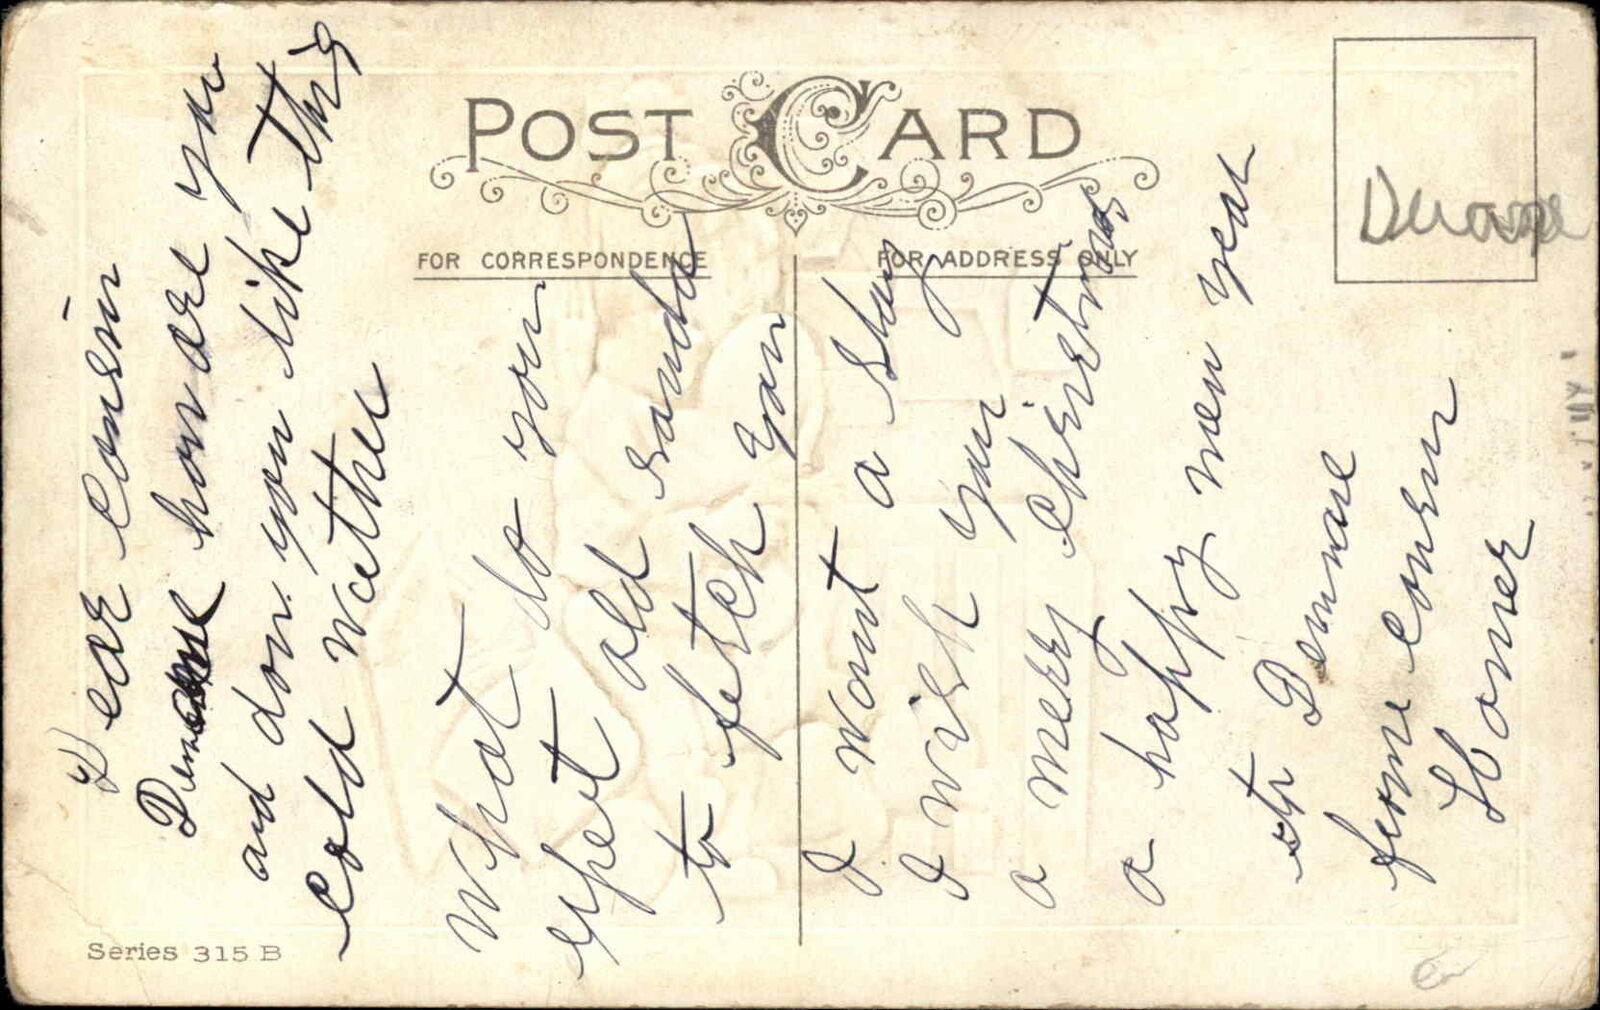 POST CARD
FOR CORRESPONDENCE
FOR ADDRESS ONLY
Dear Cousin
Demase how are you
and don you like this
cold wether
What do you
expet old sanda
to fetch you
I want a slay
I wish you
a merry Chirstmas
a happy new year
to Demase
frome cousin
Homer
Series 315 B